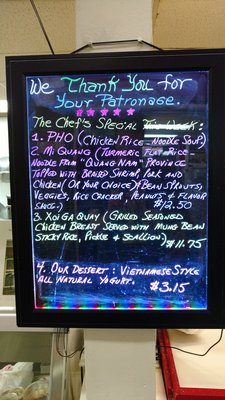 We Thank You for
Your Patronage.
The Chef's Special This Week:
1. PHO (Chicken Rice Noodle Soup.)
2. Mi Quang (Turmeric Flat Rice-
Noodle from "Quang Nam" Province
Topped with Braised Shrimp, Pork and
Chicken (Or Your Choice) (Bean Sprouts,
Veggies, Rice Cracker, Peanuts & Flavor
$12.50
3. Xoi Ga Quay (Grilled Seasoned
Chicken Breast Served with Mung Bean
Sticky Rice, Pickle & Scallion). $11.75
4. Our Dessert: Vietnamese Style
All Natural Yogurt. $3.15